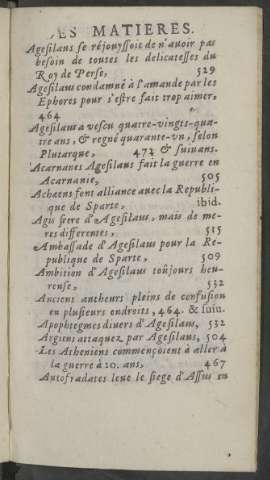 DES MATIERES.
Agesilans se réjouyssoit de n'auoir pas
besoin de toutes les delicatesses du
Roy de Perse, 529
Agesilaus condamné à l'amande par les
Ephores pour s'estre fait trop aimer,
464
Agesilaus a vescu quatre-vingts-qua-
tre ans, & regné quarante-un, selon
Plutarque, 472 & suiuans.
Acarnanes Agesilaus fait la guerre en
Acarnanie, 505
Achaens font alliance auec la Republi-
que de Sparte, ibid.
Agis frere d'Agesilaus, mais de me-
res differentes, 515
Ambassade d'Agesilaus pour la Re-
publique de Sparte, 509
Ambition d'Agesilaus toûjours heu-
reuse, 532
Anciens autheurs pleins de confusion
en plusieurs endroits, 464. & suiu.
Apophtegmes diuers d'Agesilaus, 532
Argiens attaquez par Agesilaus, 504
Les Atheniens commençoient à aller à
la guerre à 20. ans, 467
Autofradates leue le siege d'Assus en